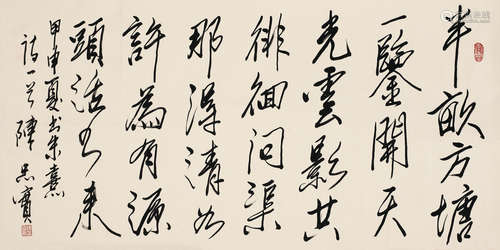 半畝方塘
一鑒開天
光雲影共
徘徊問渠
那得清如
許為有源
頭活水來
甲申夏書朱熹
詩一首 陳忠實